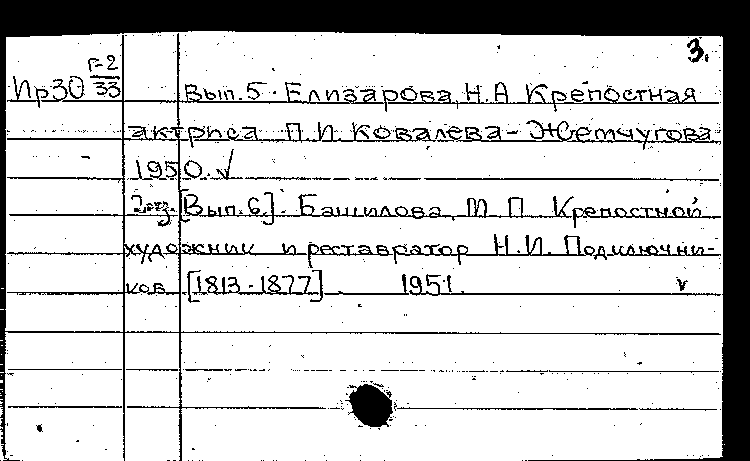 3.
Г-2
Ир30 33
Вып. 5. Елизарова, Н.А Крепостная
актриса П.И. Ковалева-Жемчугова
1950. √
2 экз. [Вып. 6]. Башилова, М П Крепостной
художник и реставратор Н.И. Подключни-
ков [1813-1877]. 1951. v